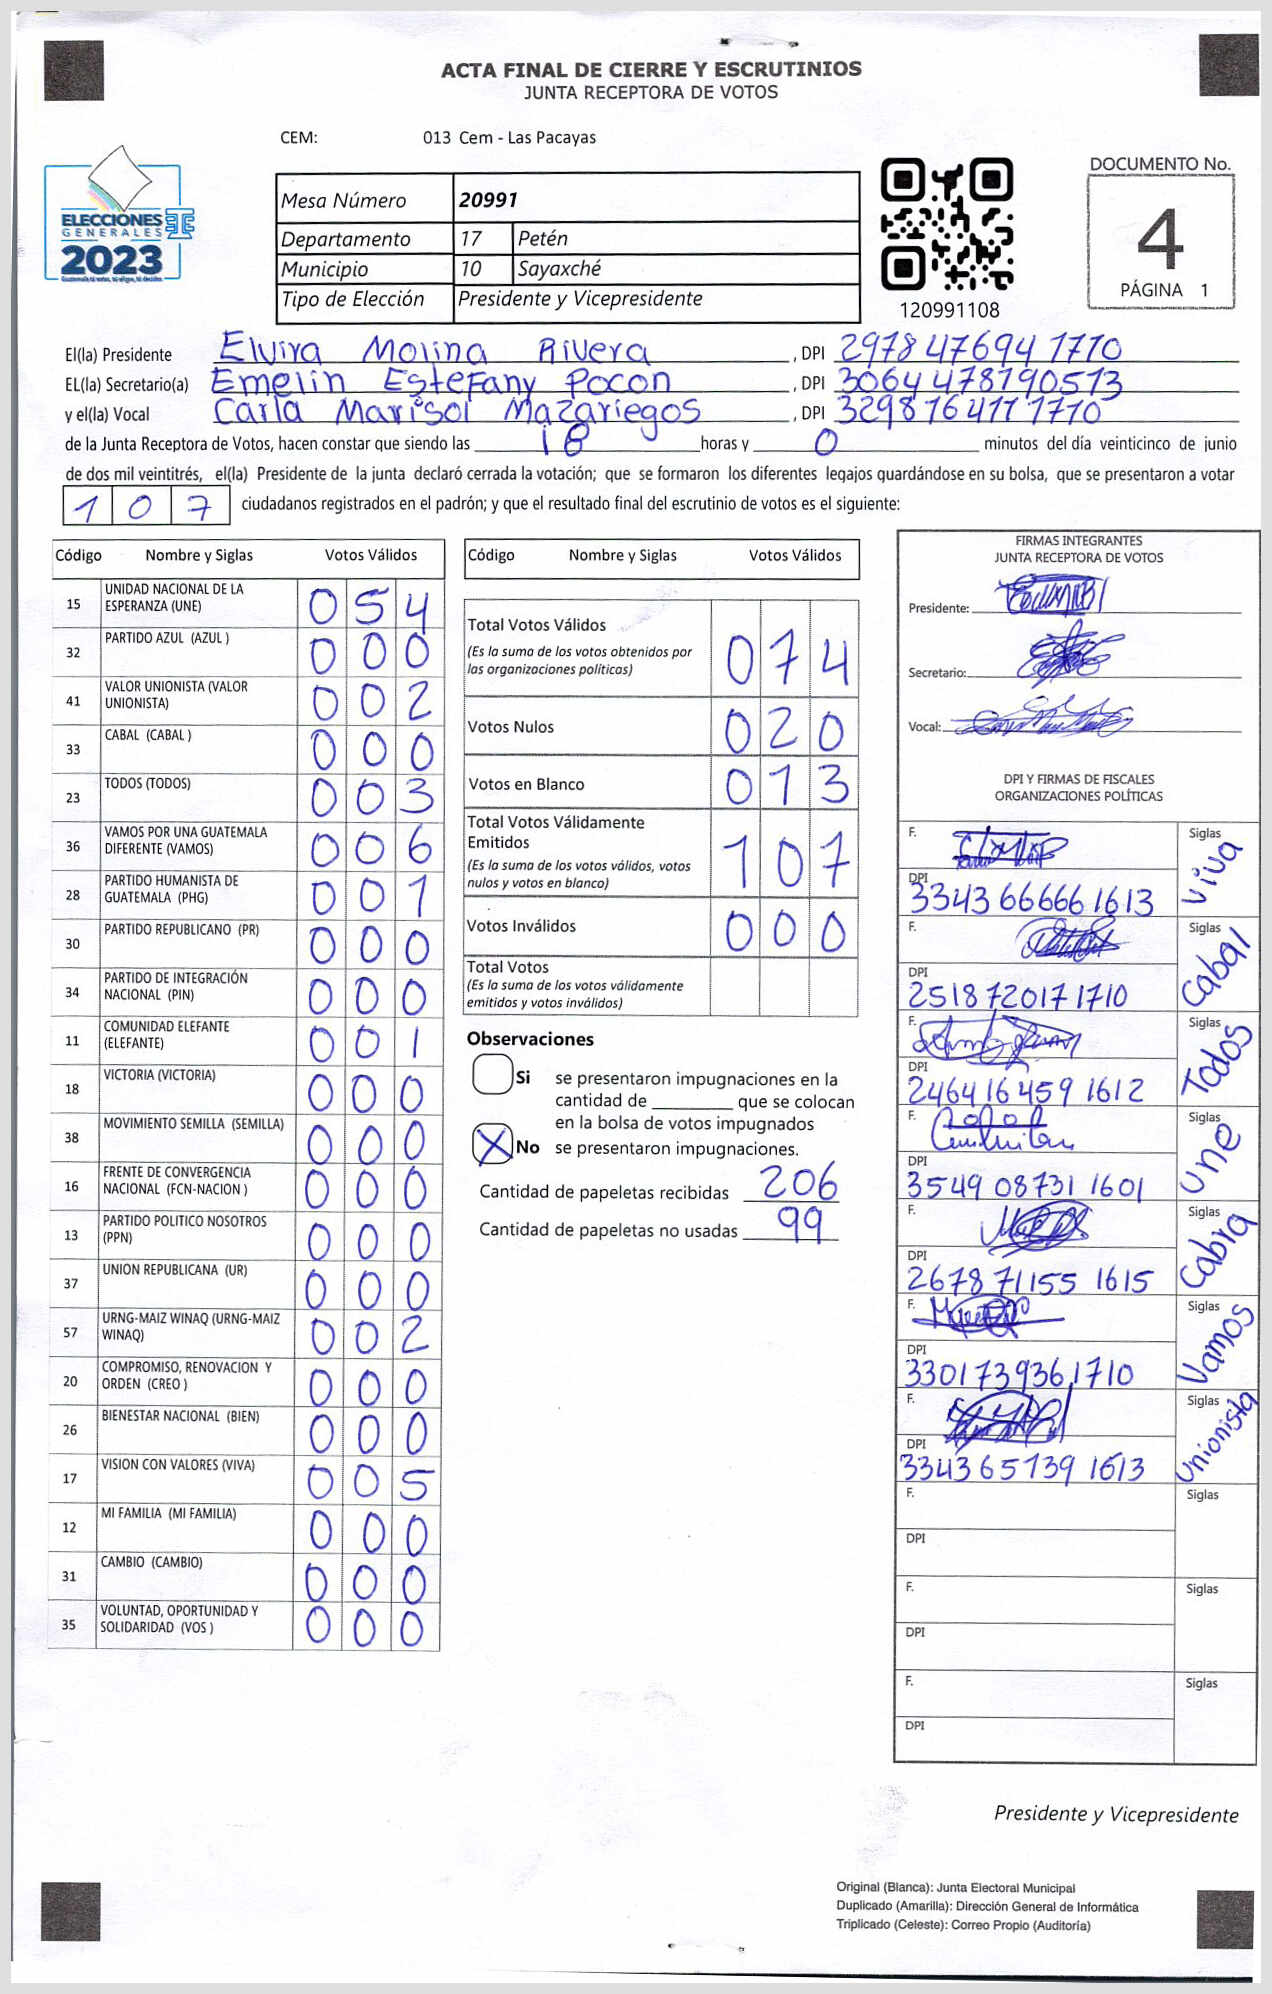 ACTA FINAL DE CIERRE Y ESCRUTINIOS
JUNTA RECEPTORA DE VOTOS
CEM: 013 Cem - Las Pacayas
ELECCIONES
GENERALES
2023
Mesa Número 20991
Departamento 17 Petén
Municipio 10 Sayaxché
Tipo de Elección Presidente y Vicepresidente
120991108
DOCUMENTO No.
4
PÁGINA 1
El(la) Presidente Elvira Molina Rivera , DPI 2978 47694 1710
EL(la) Secretario(a) Emelin Estefany Pocon , DPI 3064 478790513
y el(la) Vocal Carla Marisol Mazariegos , DPI 3298 76411 1710
de la Junta Receptora de Votos, hacen constar que siendo las 18 horas y 0 minutos del día veinticinco de junio
de dos mil veintitrés, el(la) Presidente de la junta declaró cerrada la votación; que se formaron los diferentes legajos guardándose en su bolsa, que se presentaron a votar
107 ciudadanos registrados en el padrón; y que el resultado final del escrutinio de votos es el siguiente:
Código Nombre y Siglas Votos Válidos
15 UNIDAD NACIONAL DE LA ESPERANZA (UNE) 054
32 PARTIDO AZUL (AZUL ) 000
41 VALOR UNIONISTA (VALOR UNIONISTA) 002
33 CABAL (CABAL ) 000
23 TODOS (TODOS) 003
36 VAMOS POR UNA GUATEMALA DIFERENTE (VAMOS) 006
28 PARTIDO HUMANISTA DE GUATEMALA (PHG) 001
30 PARTIDO REPUBLICANO (PR) 000
34 PARTIDO DE INTEGRACIÓN NACIONAL (PIN) 000
11 COMUNIDAD ELEFANTE (ELEFANTE) 001
18 VICTORIA (VICTORIA) 000
38 MOVIMIENTO SEMILLA (SEMILLA) 000
16 FRENTE DE CONVERGENCIA NACIONAL (FCN-NACION ) 000
13 PARTIDO POLITICO NOSOTROS (PPN) 000
37 UNION REPUBLICANA (UR) 000
57 URNG-MAIZ WINAQ (URNG-MAIZ WINAQ) 002
20 COMPROMISO, RENOVACION Y ORDEN (CREO ) 000
26 BIENESTAR NACIONAL (BIEN) 000
17 VISION CON VALORES (VIVA) 005
12 MI FAMILIA (MI FAMILIA) 000
31 CAMBIO (CAMBIO) 000
35 VOLUNTAD, OPORTUNIDAD Y SOLIDARIDAD (VOS ) 000
Código Nombre y Siglas Votos Válidos
Total Votos Válidos 074
(Es la suma de los votos obtenidos por
las organizaciones políticas)
Votos Nulos 020
Votos en Blanco 013
Total Votos Válidamente
Emitidos 107
(Es la suma de los votos válidos, votos
nulos y votos en blanco)
Votos Inválidos 000
Total Votos
(Es la suma de los votos válidamente
emitidos y votos inválidos)
Observaciones
Si se presentaron impugnaciones en la
cantidad de ________ que se colocan
en la bolsa de votos impugnados
X No se presentaron impugnaciones.
Cantidad de papeletas recibidas 206
Cantidad de papeletas no usadas 99
FIRMAS INTEGRANTES
JUNTA RECEPTORA DE VOTOS
Presidente:
Secretario:
Vocal:
DPI Y FIRMAS DE FISCALES
ORGANIZACIONES POLÍTICAS
F. Siglas Viva
DPI 3343 66666 1613
F. Siglas Cabal
DPI 2518 72017 1710
F. Siglas Todos
DPI 2464 16459 1612
F. Siglas Une
DPI 3549 08731 1601
F. Siglas Cabra
DPI 2678 71155 1615
F. Siglas Vamos
DPI 3301 73936 1710
F. Siglas Unionista
DPI 3343 65739 1613
F. Siglas
DPI
F. Siglas
DPI
F. Siglas
DPI
Presidente y Vicepresidente
Original (Blanca): Junta Electoral Municipal
Duplicado (Amarilla): Dirección General de Informática
Triplicado (Celeste): Correo Propio (Auditoría)